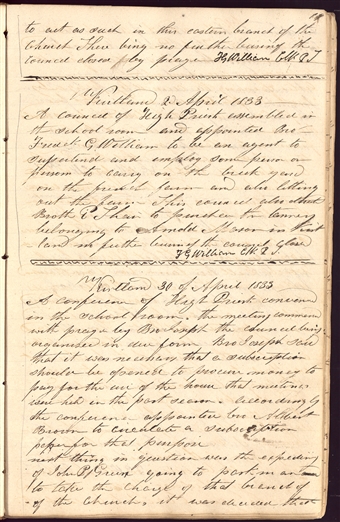 to act as such in this eastern branch of the
Church There being no further buisiness the
council closed by prayer F G William C.W.P.T
Kirtland 2 April 1833
A council of High Priests assembled in
the school room and appointed Bro
Fredck G William to be an agent to
superintend and employ some person or
persons to carry on the brick yard
on the french farm and also letting
out the farm This council also
Brother to purchase the tannery
belonging to Arnold Mason in Kirt
land no further buisness the council closed
F G William C.W.P.T.
Kirtland 30 of April 1833
A conference of High Priests convened
in the school room. the meeting commenced
with prayer by Bro Joseph the council being
organised in due form Bro Joseph said
that it was necessary that a subscription
should be opened to procure money to
pay for the use of the house that meetings
were held in the past season. Accordingly
the conference appointed bro Albert
Brown to circulate a subscription
paper for that purpose
next thing in question was the expediency
of John P Green going to
to take the charge of that branch of
of the Church, it was decided that